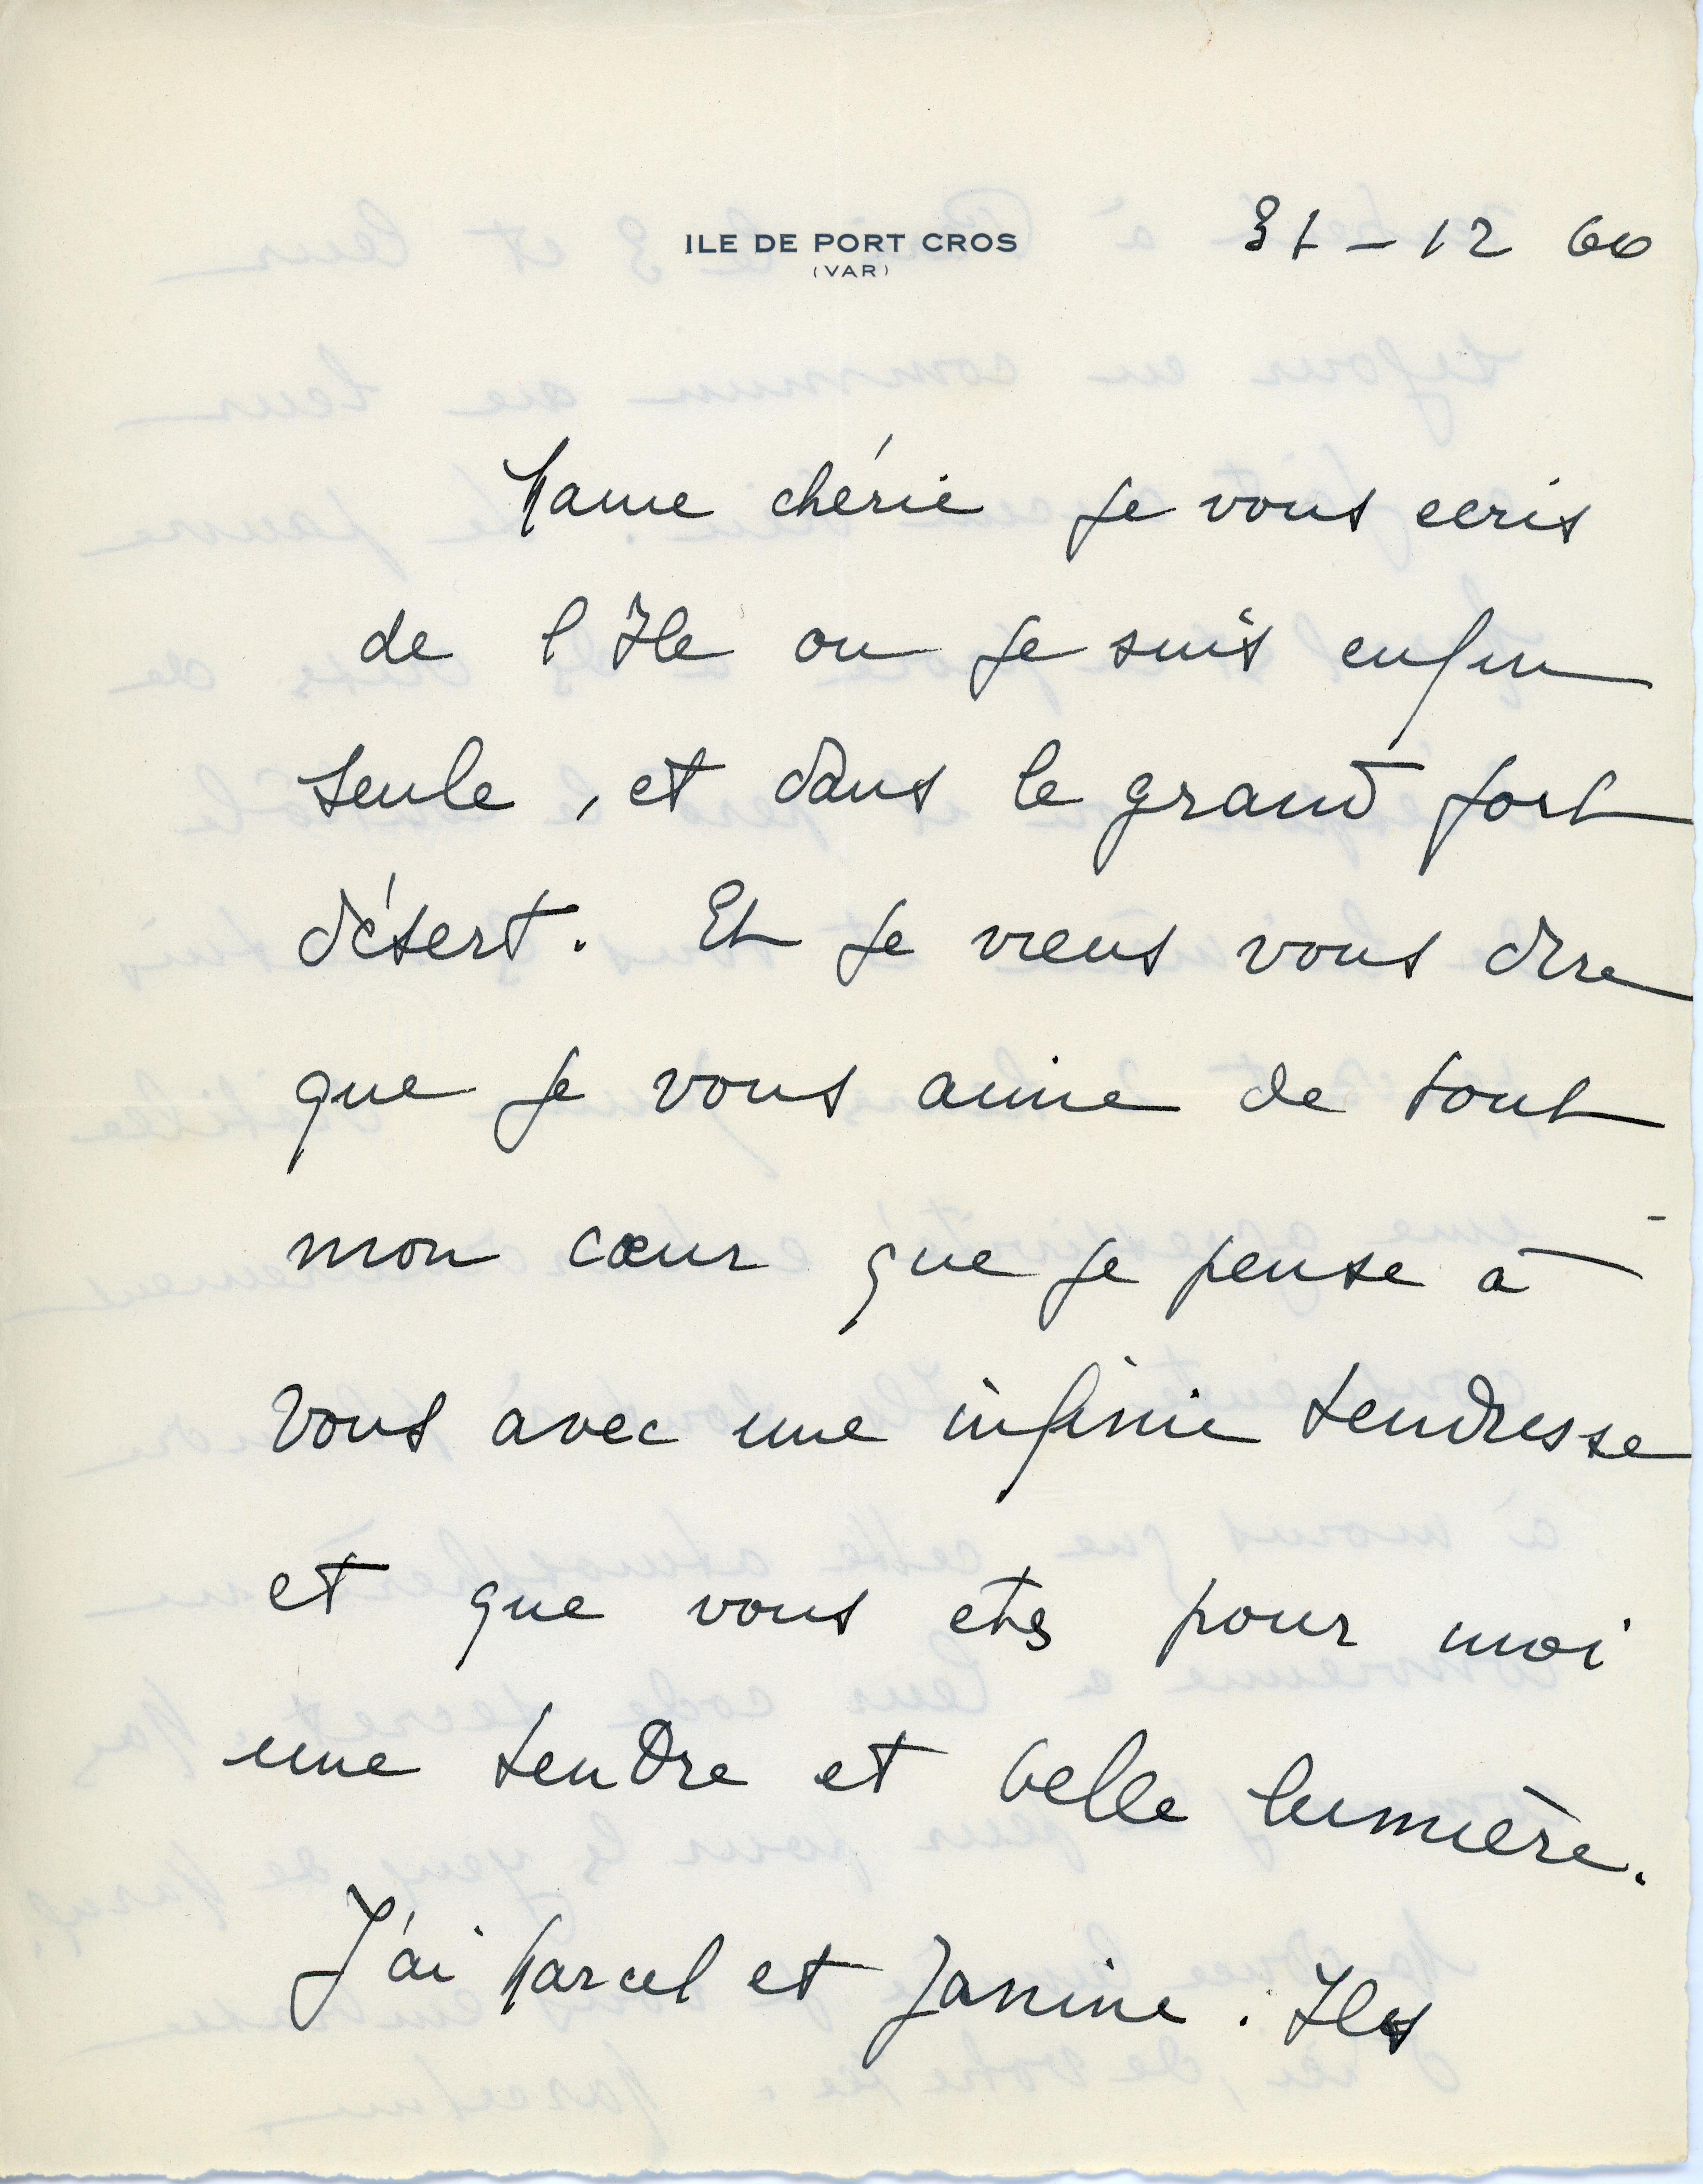 ILE DE PORT CROS
(VAR)
31 – 12 60
Mame chérie je vous ecris
de l'Ile ou je suis enfin
seule, et dans le grand fort
désert. Et je viens vous dire
que je vous aime de tout
mon cœur que je pense à
vous avec une infinie tendresse
et que vous ets pour moi
une tendre et belle lumière.
J'ai Marcel et Janine. Ils